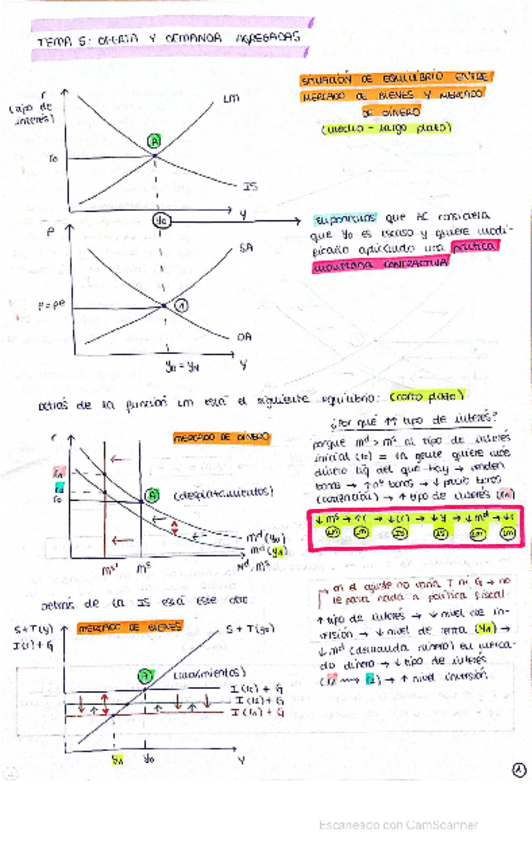 TEMA 5: OFERTA Y DEMANDA AGREGADAS
SITUACIÓN DE EQUILIBRIO ENTRE
MERCADO DE BIENES Y MERCADO
DE DINERO
(medio - largo plazo)
r
(tipo de
interés)
LM
A
r0
IS
Y
y0
suponemos que BC considera
que y0 es escaso y quiere modi-
ficarlo aplicando una política
monetaria CONTRACTIVA
P
SA
P=Pe
1
DA
y0 = yN
Y
Detrás de la función LM está el siguiente equilibrio: (corto plazo)
r
MERCADO DE DINERO
¿Por qué ↑↑ tipo de interés?
porque md > ms al tipo de interés
inicial (r0) = la gente quiere más
dinero líq del que hay → venden
bonos → ↑nº bonos → ↓ precio bonos
(cotización) → ↑ tipo de interés (r1)
r1
r2
r0
A
(desplazamientos)
md(y0)
md(y1)
ms'
ms
Md, Ms
↓ms → ↑r → ↓I(r) → ↓y → ↓md → ↓r
LM LM IS IS LM LM
Detrás de la IS está este otro
en el ajuste no varía T ni G → no
le pasa nada a política fiscal
↑ tipo de interés → ↓ nivel de in-
versión → ↓ nivel de renta (y1) →
↓ md (demanda dinero) en merca-
do dinero → ↓ tipo de interés
(r1 → r2) → ↑ nivel inversión
S+T(y)
I(r)+G
MERCADO DE BIENES
S+T(y0)
A
(movimientos)
I(r0)+G
I(r2)+G
I(r1)+G
y1
y0
Y
1
Escaneado con CamScanner